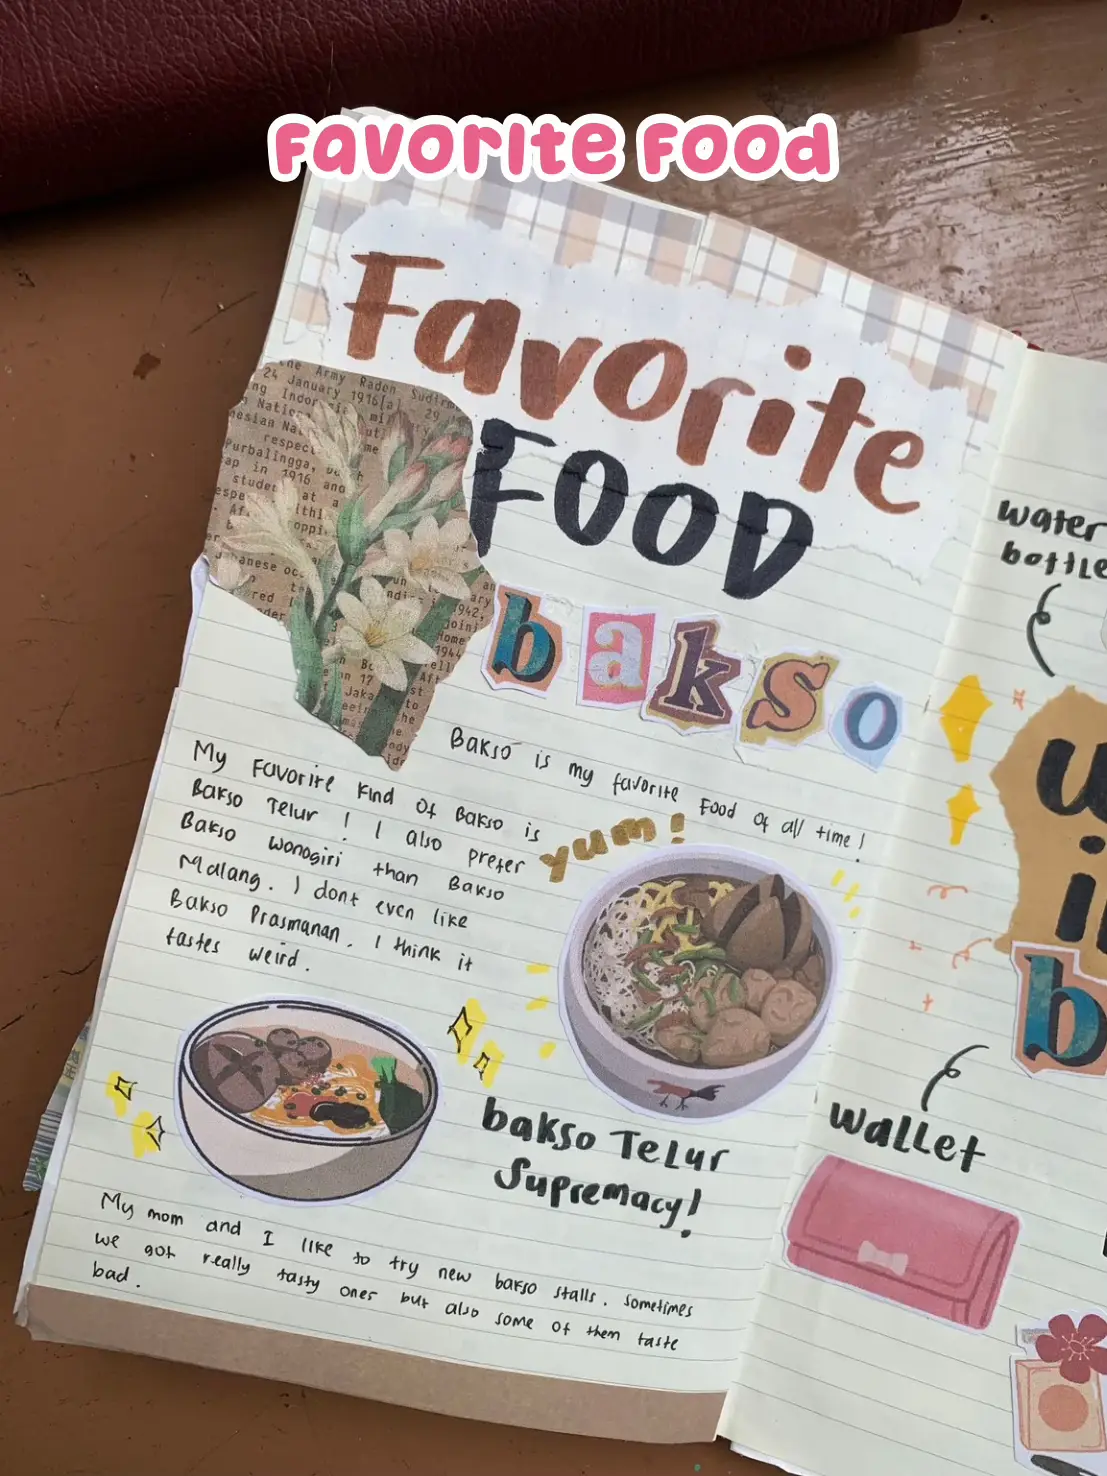 Favorite Food
Favorite
FOOD
the Army Raden Sudirm
24 January 1916[a] 29
respect
Purbalingga,
ap in 1916 and
student at a
bakso
Bakso is my favorite food of all time!
My favorite kind of Bakso is
Bakso Telur ! I also prefer
Bakso Wonogiri than Bakso
Malang. I dont even like
Bakso Prasmanan. I think it
tastes weird.
yum!
bakso Telur
Supremacy!
My mom and I like to try new bakso stalls. Sometimes
we got really tasty ones but also some of them taste
bad.
water
bottle
b
wallet